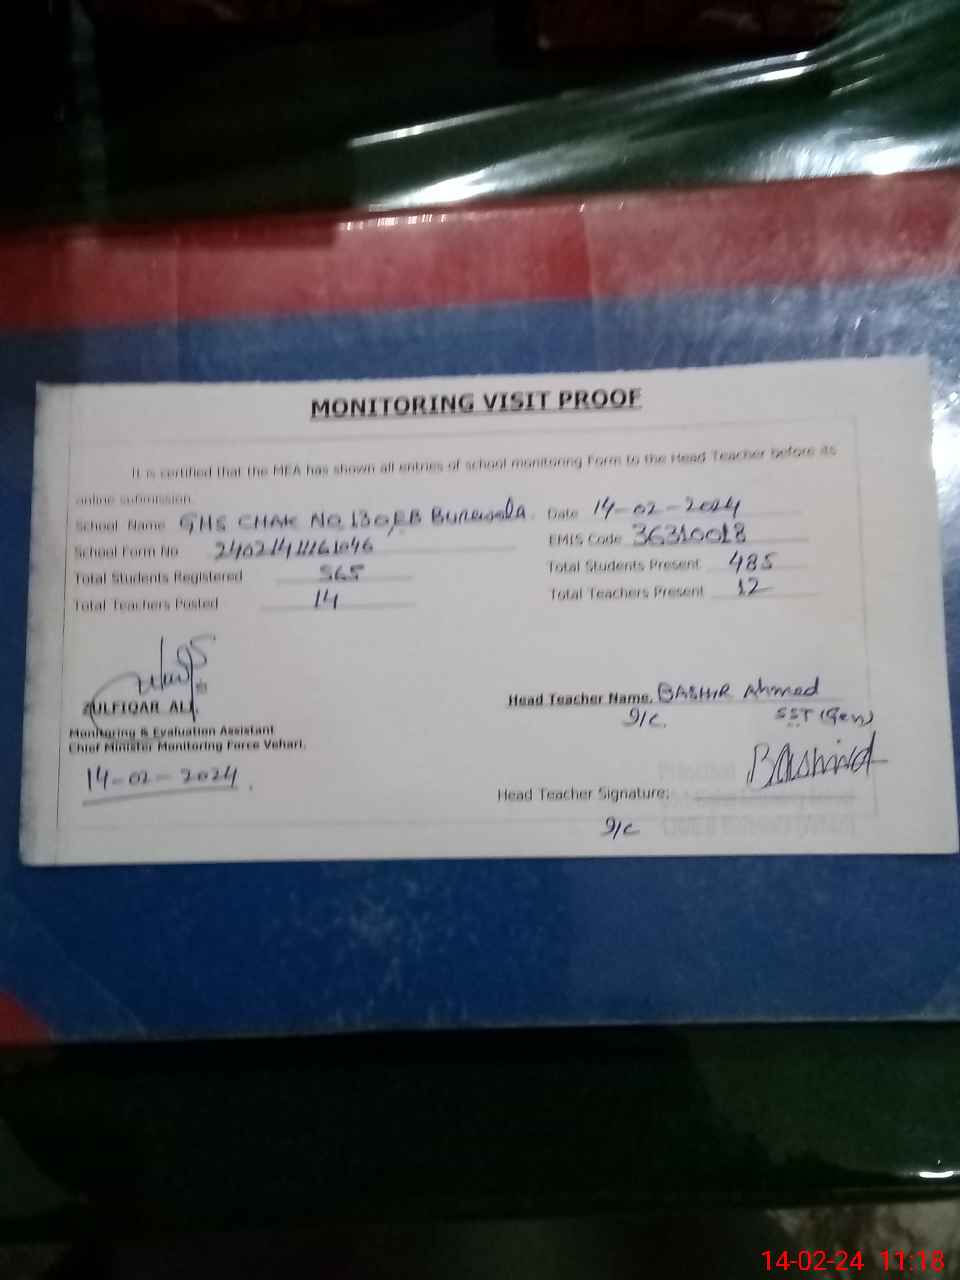 MONITORING VISIT PROOF
It is certified that the MEA has shown all entries of school monitoring Form to the Head Teacher before its
online submission.
School Name GHS CHAK NO. 130/EB Burewala. Date 14-02-2024
School Form No EMIS Code 36310018
Total Students Registered 565 Total Students Present 485
Total Teachers Posted 14 Total Teachers Present 12
ZULFIQAR ALI.
Monitoring & Evaluation Assistant
Chief Minister Monitoring Force Vehari.
14-02-2024.
Head Teacher Name. BASHIR Ahmed
I/C. SST (Gen)
Head Teacher Signature: Bashir
I/C
14-02-24 11:18